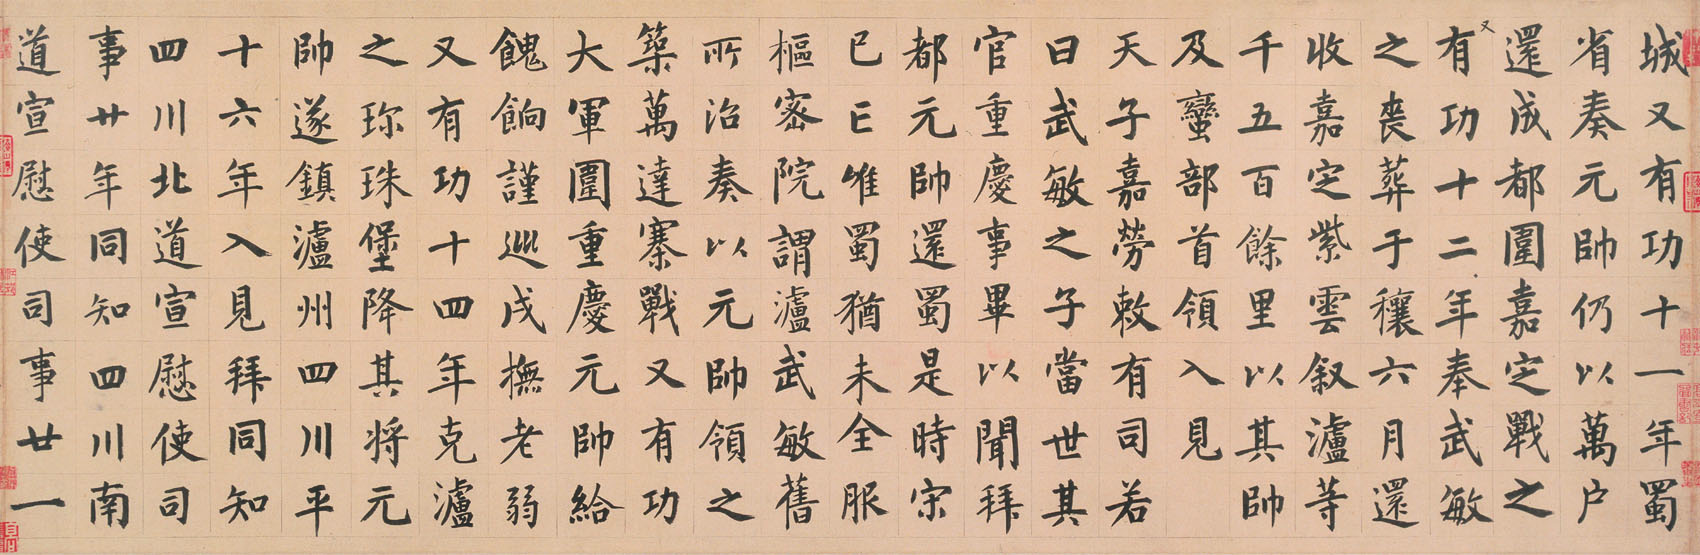 城又有功十一年蜀
省奏元帥仍以萬户
還成都圍嘉定戰之
又有功十二年奉武敏
之喪葬于穰六月還
收嘉定紫雲叙瀘等
千五百餘里以其帥
及蠻部首領入見
天子嘉勞敕有司若
曰武敏之子當世其
官重慶事畢以聞拜
都元帥還蜀是時宋
已亡唯蜀猶未全服
樞密院謂瀘武敏舊
所治奏以元帥領之
築萬達寨戰又有功
大軍圍重慶元帥給
餽餉謹巡戍撫老弱
又有功十四年克瀘
之珎珠堡降其将元
帥遂鎮瀘州四川平
十六年入見拜同知
四川北道宣慰使司
事廿年同知四川南
道宣慰使司事廿一